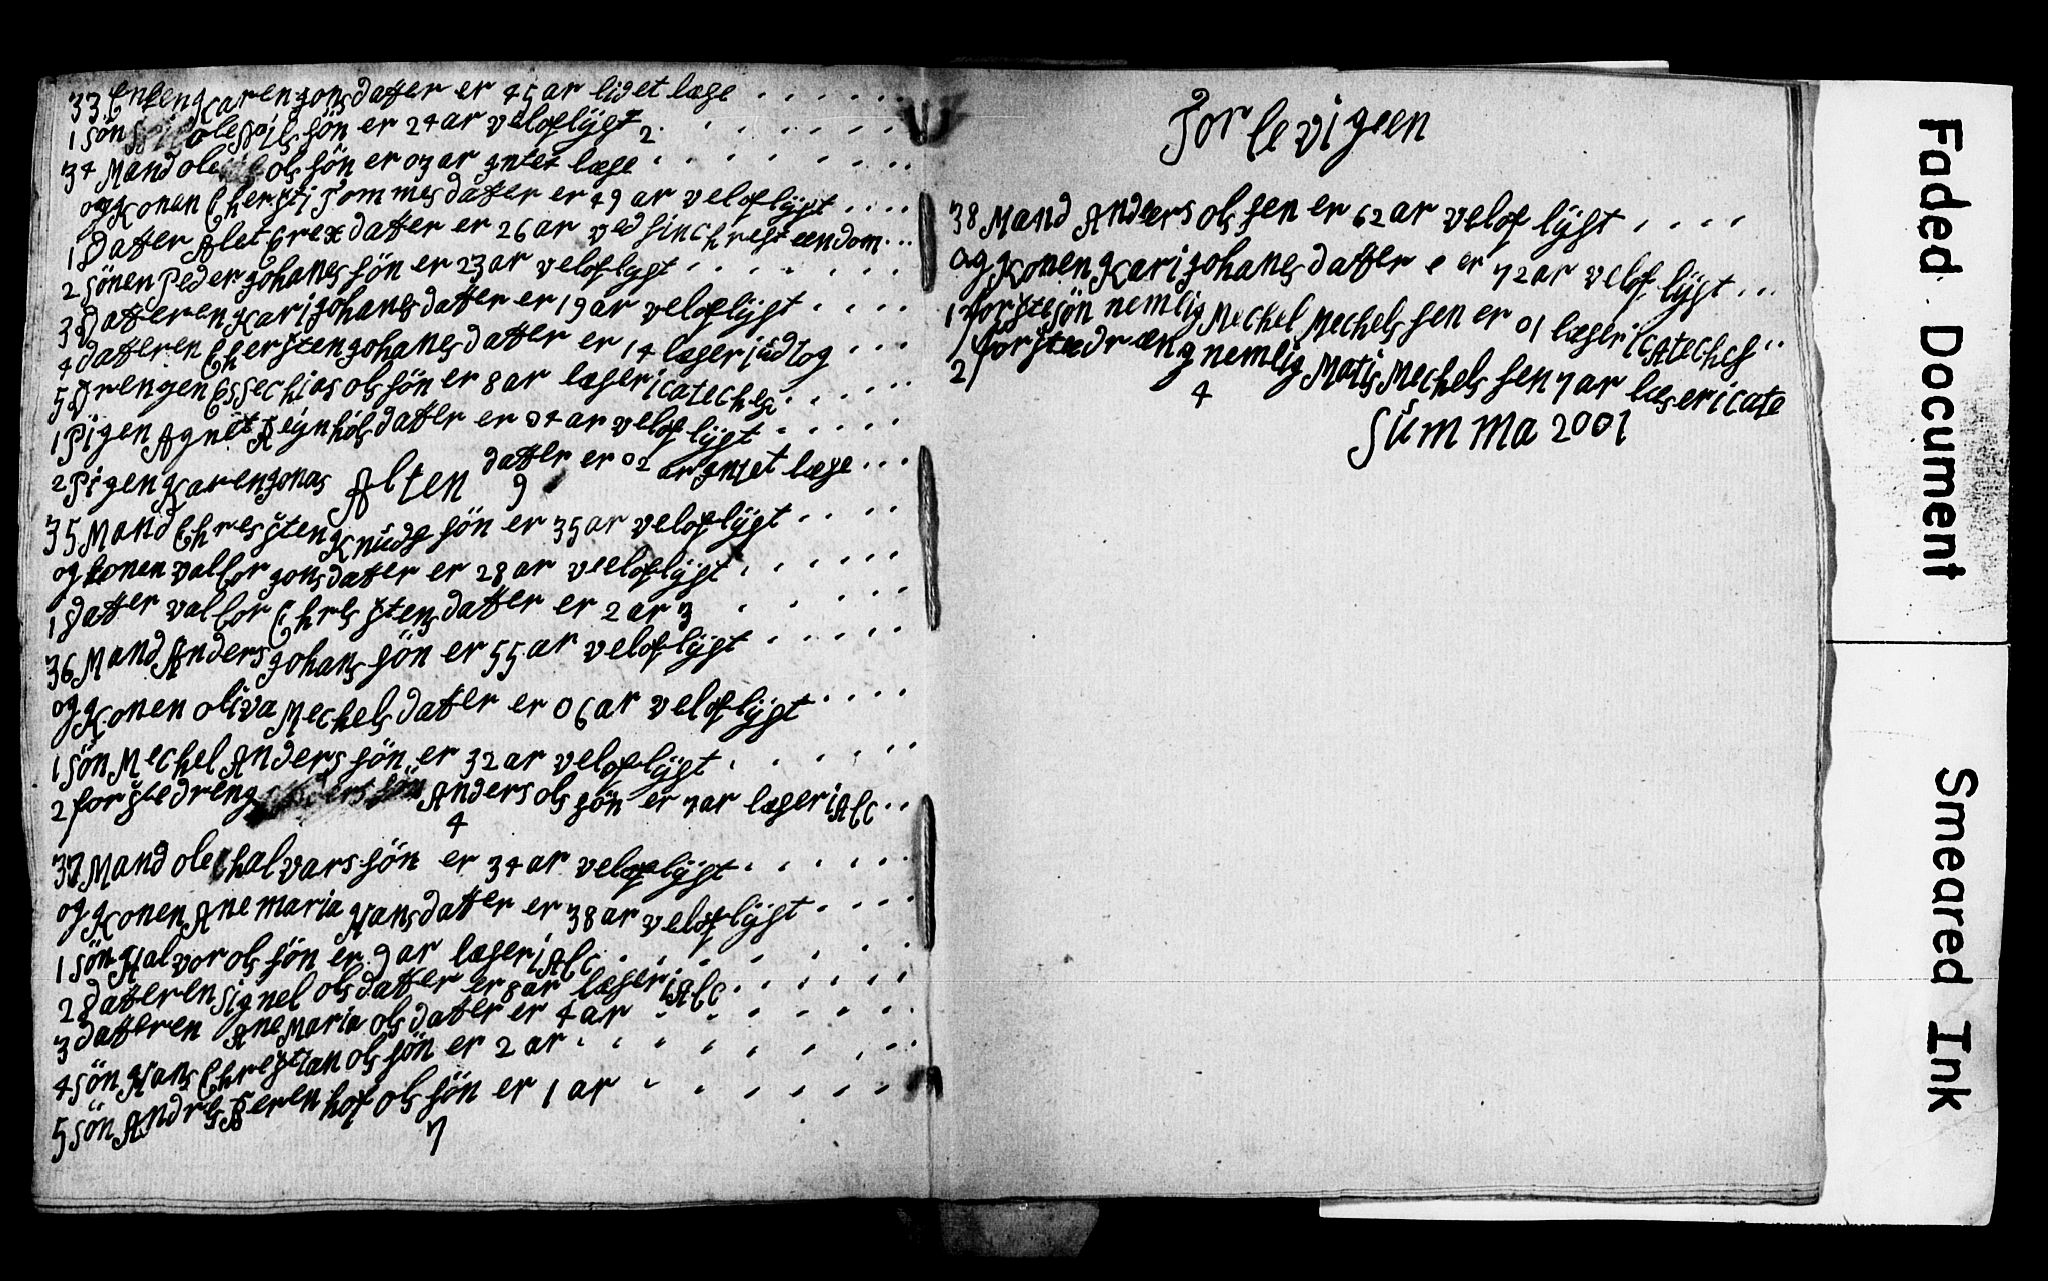 33 Enken Karen jonsdatter er 45 ar lidet læse
1 sön ole Nils sön er 24 ar veloplÿst
2
34 Mand ole ols sön er 03 ar jntet læse
og Konen Chersti Tommesdatter er 49 ar veloplÿst
1 datter Alet Erex datter er 26 ar ved sin chrestendom
2 sönen Peder johanes sön er 23 ar veloplÿst
3 datteren Kari johanes datter er 19 ar veloplÿst
4 datteren Chersten johanes datter er 14 læser i üdtog
5 Drengen Essechias ols sön er 8 ar læser i catechess
1 Pigen Agnet Reÿnhöls datter er 04 ar velop lÿst
2 Pigen Karen jonas datter er 02 ar jntet læse
Alten 9
35 Mand Chresten Knüds sön er 35 ar veloplÿst
og konen valbor jonsdatter er 28 ar veeloplÿst
1 datter valbor Chrestens datter er 2 ar 3
36 Mand Anders johans sön er 55 ar veloplÿst
og Konen oliva Mechels datter er 06 ar veloplÿst
1 sön Mechel Anders sön er 32 ar veloplÿst
2 forste dreng Anders ols sön er 7 ar læser i Abc
4
37 Mand ole halvars sön er 34 ar veloplÿst
og Konen Ane maria Hans datter er 38 ar veloplÿst
1 sön Halvor ols sön er 9 ar læser i Abc
2 datteren signel ols datter er 8 ar læser i Abc
3 datteren Ane Maria ols datter er 4 ar
4 sön Hans Chrestian ols sön er 2 ar
5 sön Andres Berenhof ols sön er 1 ar
7
Torlevigeen
38 Mand Anders ols sen er 62 ar velop lÿst
og Konen Kari johanes datter e er 72 ar velop lÿst
1 forste sön nemlig Mechel Mechels sen er 01 læser i catechss
2 forste dræng nemlig Matis Mechels sen 7 ar læser i cate
4
Süm ma 2001
Faded Document
Smeared Ink